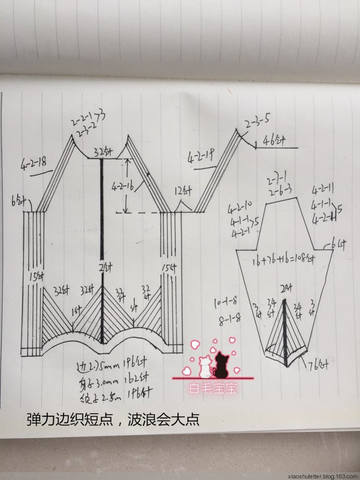 2-2-1>3
2-3-2
2-3-5
46针
32针
4-2-18
4-2-16
4-2-19
6针
12针
2-3-1
2-6-3
4-2-10
4-1-1>5
4-2-1
4-2-11
4-1-1>5
6针
16+76+16=108针
15针
32针
2针
32针
15针
1针
2针
10-1-8
8-1-8
34针
76针
边2.75mm 196针
身子3.0mm 162针
弹力边织短点，波浪会大点
白毛宝宝
xiaoshuletter.blog.163.com